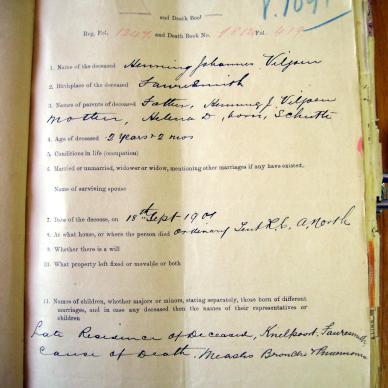 and Death Book
Reg. Fol. 1247 and Death Book No. Fol. 419
1. Name of the deceased Henning Johannes Viljoen
2. Birthplace of the deceased Fauresmith
3. Names of parents of deceased Father, Henning J. Viljoen
Mother, Helena D, born, Schutte
4. Age of deceased 2 years & 2 mos
5. Conditions in life (occupation)
6. Married or unmarried, widower or widow, mentioning other marriages if any have existed.
Name of surviving spouse
7. Date of the decease, on 18th Sept 1901
8. At what house, or where the person died Ordinary Tent R.C. A. North
9. Whether there is a will
10. What property left fixed or movable or both
11. Names of children, whether majors or minors, stating separately, those born of different
marriages, and in case any deceased then the names of their representatives or
children
Late Residence of Deceased, Knelpoort, Fauresmith
Cause of Death. Measles Broncho Pneumonia